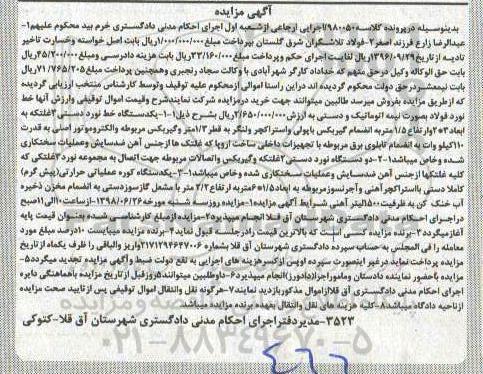 آگهی مزایده
بدینوسیله درپرونده کلاسه۹۸۰۰۵۰اجرایی ارجاعی ازشعبه اول اجرای احکام مدنی دادگستری خرم بید محکوم علیهم۱-
عبدالرضا زارع فرزند اصغر۲-فولاد تلاشگران شرق گلستان بپرداخت مبلغ۱/۰۰۰/۰۰۰/۰۰۰ریال بابت اصل خواسته وخسارت تاخیر
تادیه از تاریخ۱۳۹۶/۰۹/۲۹لغایت اجرای حکم وپرداخت مبلغ۳۳/۱۶۰/۰۰۰ریال بابت هزینه دادرسی ومبلغ۴۵/۲۰۰/۰۰۰ریال
بابت حق الوکاله وکیل درحق متهم که خداداد کارگر شهرآبادی با وکالت سجاد رنجبری وهمچنین پرداخت مبلغ۷۱/۷۶۵/۲۰۵ریال
بابت نیمعشردرحق دولت محکوم گردیده اند دراین راستا اموالی ازمحکوم علیه توقیف وتوسط کارشناس منتخب ارزیابی گردیده
که ازطریق مزایده بفروش میرسد طالبین میتوانند جهت خرید درمزایده شرکت نمایندشرح وقیمت اموال توقیفی وارزش آنها خط
نورد فولاد بصورت نیمه اتوماتیک و دستی به ارزش۲/۶۵۰/۰۰۰/۰۰۰ریال بشرح ذیل۱-۱-یکدستگاه خط نورد دستی۳غلتکه به
ابعاد۳*۲وارتفاع ۱/۵ متربه انضمام گیربکس باپولی واستراکچر ولنگر به قطر۱/۳متر وگیربکس مربوطه والکتروموتور اصلی به قدرت
۱۱۰کیلو وات به انضمام تابلوی برق مربوطه با تجهیزات داخلی ساخت اروپا که غلتک ها ازجنس آهن ضدسایش وعملیات سختکاری
شده وخاص میباشد۱-۲-دو دستگاه نورد دستی۲غلتکه وگیربکس واتصالات مربوطه جهت اتصال به مجموعه نورد۳غلتکی که
کلیه غلتکها ازجنس آهن ضدسایش وعملیات سختکاری شده وخاص میباشد۱-۳-یکدستگاه کوره عملیاتی حرارتی(پیش گرم)
کاملا دستی بااستراکچرآهنی وآجرنسوزمربوطه به ابعاد۱/۵*۶متربه ارتفاع۲/۲ متر با مشعل گازسوزدستی به انضمام مخزن ذخیره
آب خنک کن به ظرفیت۱۵۰۰لیتر آهنی شرایط آگهی مزایده۱-مزایده روزسه شنبه مورخه۱۳۹۸/۰۶/۲۶-ازساعت۱۰الی۱۱صبح
دراجرای احکام مدنی دادگستری شهرستان آق قلا انجام میپذیرد۲-مزایده ازمبلغ کارشناسی شده بعنوان قیمت پایه
آغازمیگردد۳-برنده مزایده کسی است که بالاترین قیمت رادرجلسه قبول نماید۴-برنده مزایده میبایست ۱۰درصد مبلغ مورد
معامله را فی المجلس به حساب سپرده دادگستری شهرستان آق قلا بشماره ۲۱۷۱۲۹۴۶۴۷۰۰۶واریز والباقی را ظرف یکماه ازتاریخ
مزایده پرداخت نماید درغیر اینصورت سپرده اوپس ازکسرهزینه های اجرایی به نفع دولت ضبط وآگهی مزایده تجدید میگردد۵-
مزایده باحضور نماینده دادستان ومامور اجرا(دادورز)انجام میپذیرد۶-داوطلبین میتوانند۵روزقبل ازتاریخ مزایده باهماهنگی دایره
اجرای احکام مدنی دادگستری آق قلا ازاموال مذکوربازدید نمایند۷-هرگونه نقل وانتقال اموال توقیفی پس از تایید صحت مزایده
ازناحیه دادگاه میباشد۸-کلیه هزینه های نقل وانتقال بعهده برنده مزایده میباشد
۳۵۲۳-مدیردفتراجرای احکام مدنی دادگستری شهرستان آق قلا-کتوکی
۰۲۱-۸۸۳۴۹۶۷۰-۵
۴۶۶